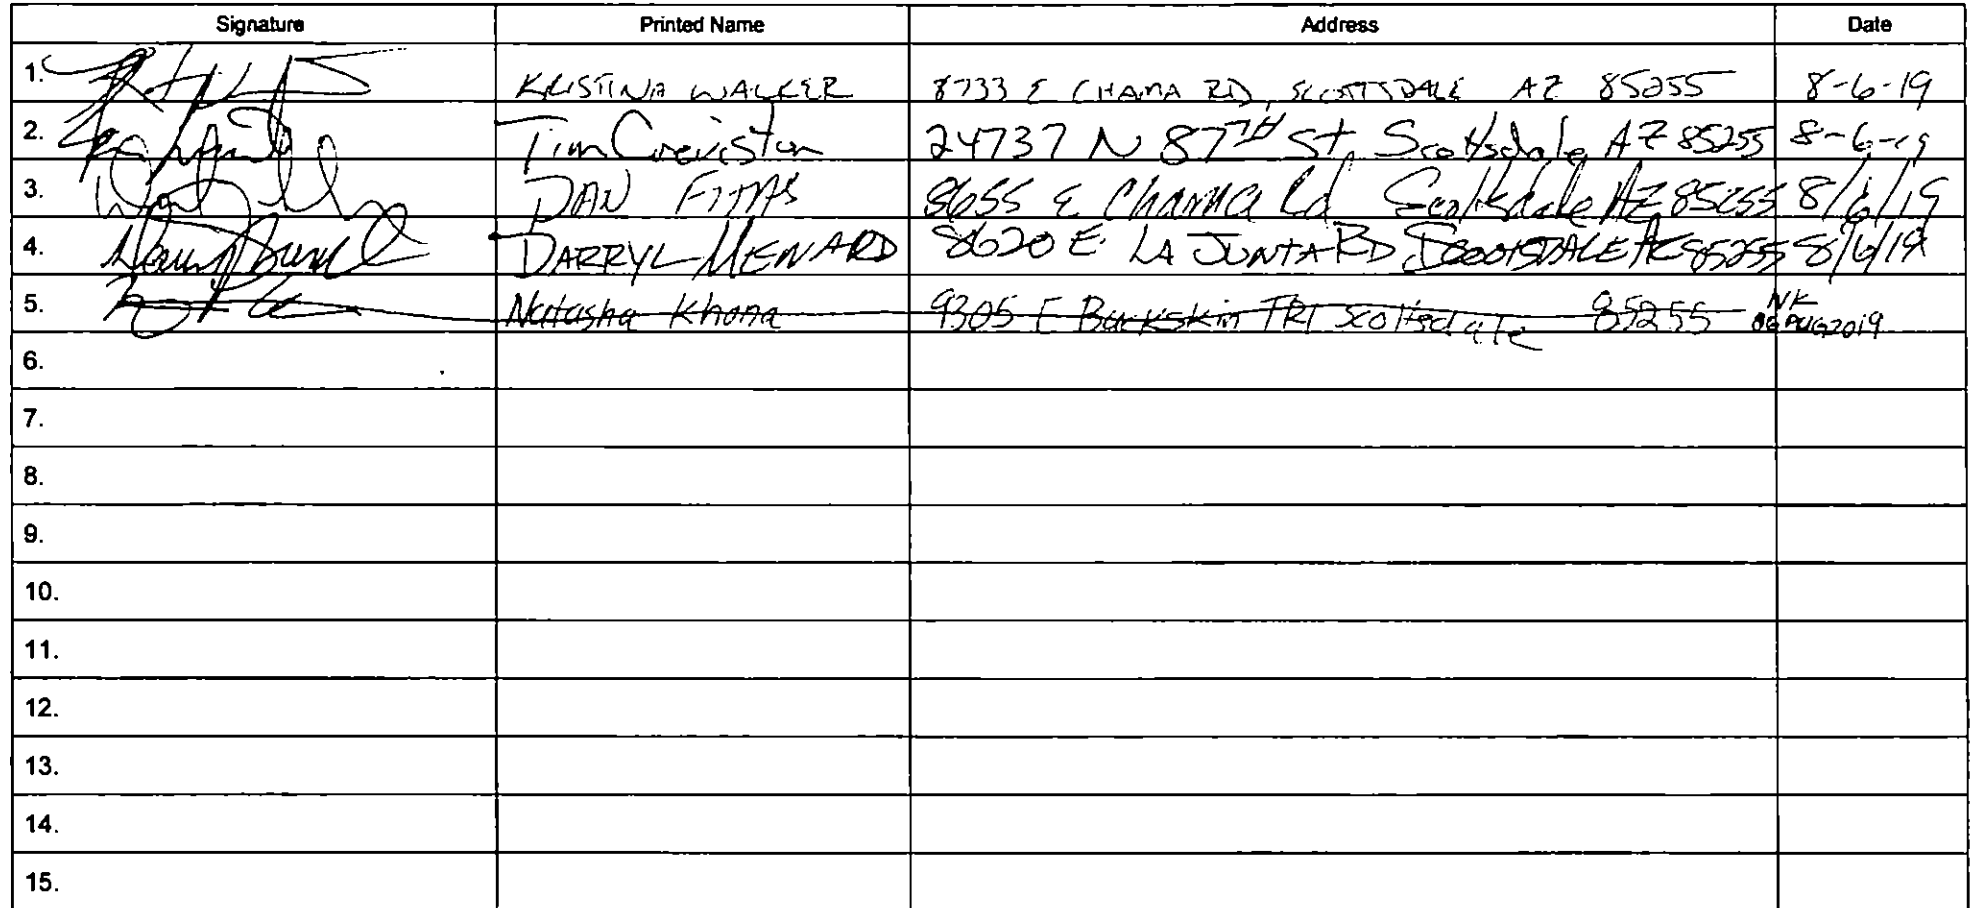 Signature Printed Name Address Date
1. KRISTINA WALKER 8733 E CHAMA RD, SCOTTSDALE AZ 85255 8-6-19
2. Tim Creviston 24737 N 87TH St. Scottsdale AZ 85255 8-6-19
3. DAN 8655 E Chama Rd Scottsdale AZ 85255 8/6/19
4. DARRYL MENARD 8620 E. LA JUNTA RD SCOOTSDALE AZ 85255 8/6/19
5. Natasha Khona 9305 E Buckskin TRl Scottsdale 85255 NK 06AUG2019
6.
7.
8.
9.
10.
11.
12.
13.
14.
15.